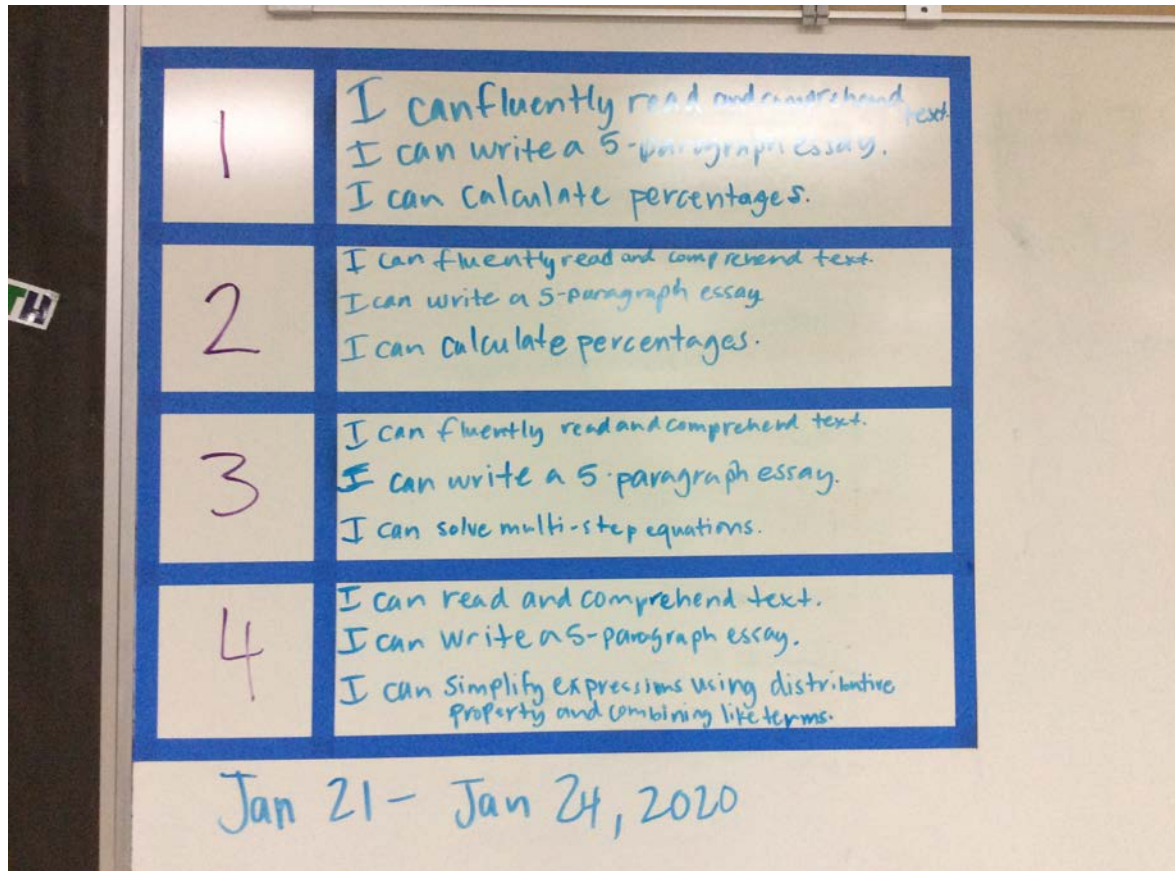 1
I can fluently read and comprehend text.
I can write a 5-paragraph essay.
I can calculate percentages.
2
I can fluently read and comprehend text.
I can write a 5-paragraph essay
I can calculate percentages.
3
I can fluently read and comprehend text.
I can write a 5-paragraph essay.
I can solve multi-step equations.
4
I can read and comprehend text.
I can write a 5-paragraph essay.
I can simplify expressions using distributive
property and combining like terms.
Jan 21 - Jan 24, 2020
TH